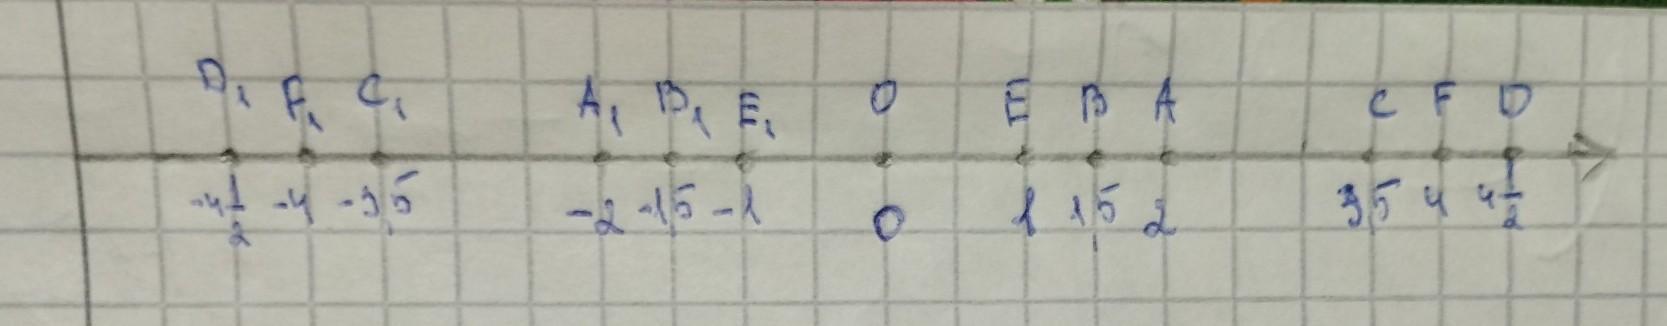 D₁ F₁ C₁ A₁ B₁ E₁ O E B A C F D
-4 1/2 -4 -3,5 -2 -1,5 -1 0 1 1,5 2 3,5 4 4 1/2